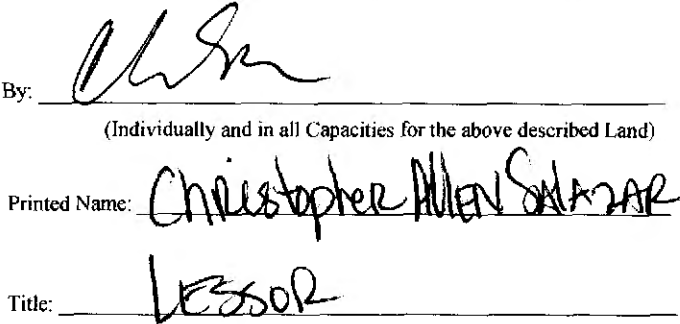 By:
(Individually and in all Capacities for the above described Land)
Printed Name: Christopher Allen Salazar
Title: Lessor